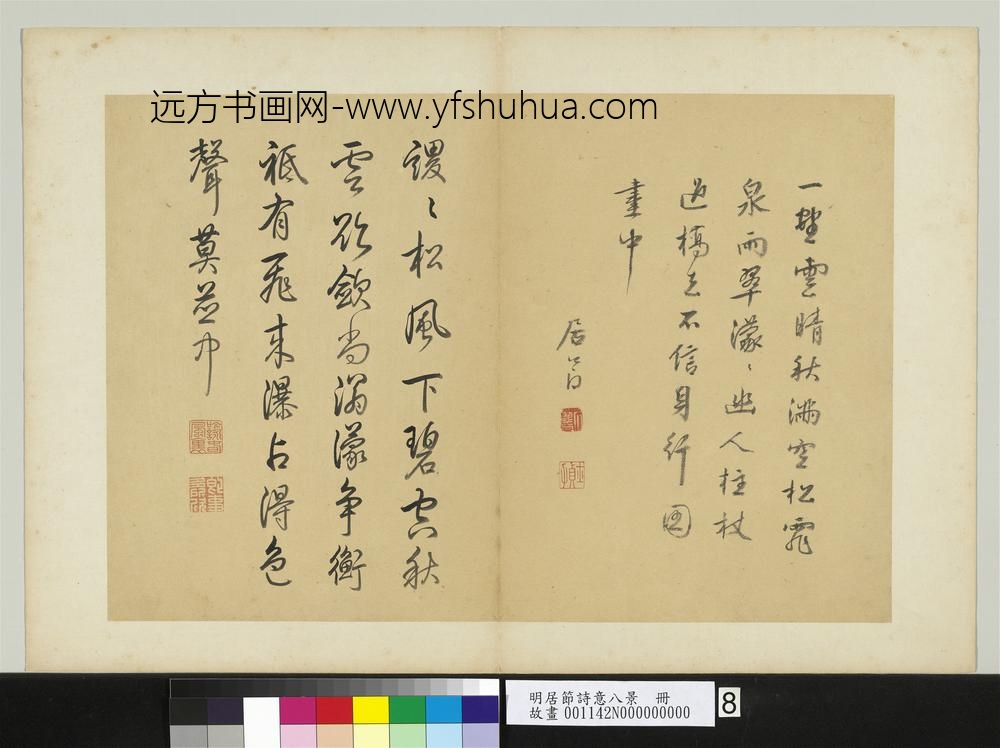 远方书画网-www.yfshuhua.com
一壑雲晴秋滿空松霏
泉雨翠濛〻幽人柱杖
過橋去不信身行圖
畫中
居節
謖〻松風下碧空秋
雲欲斂尚濛爭衡
祗有飛來瀑占得色
聲莫中
明居節詩意八景 冊
故畫 001142N000000000
8